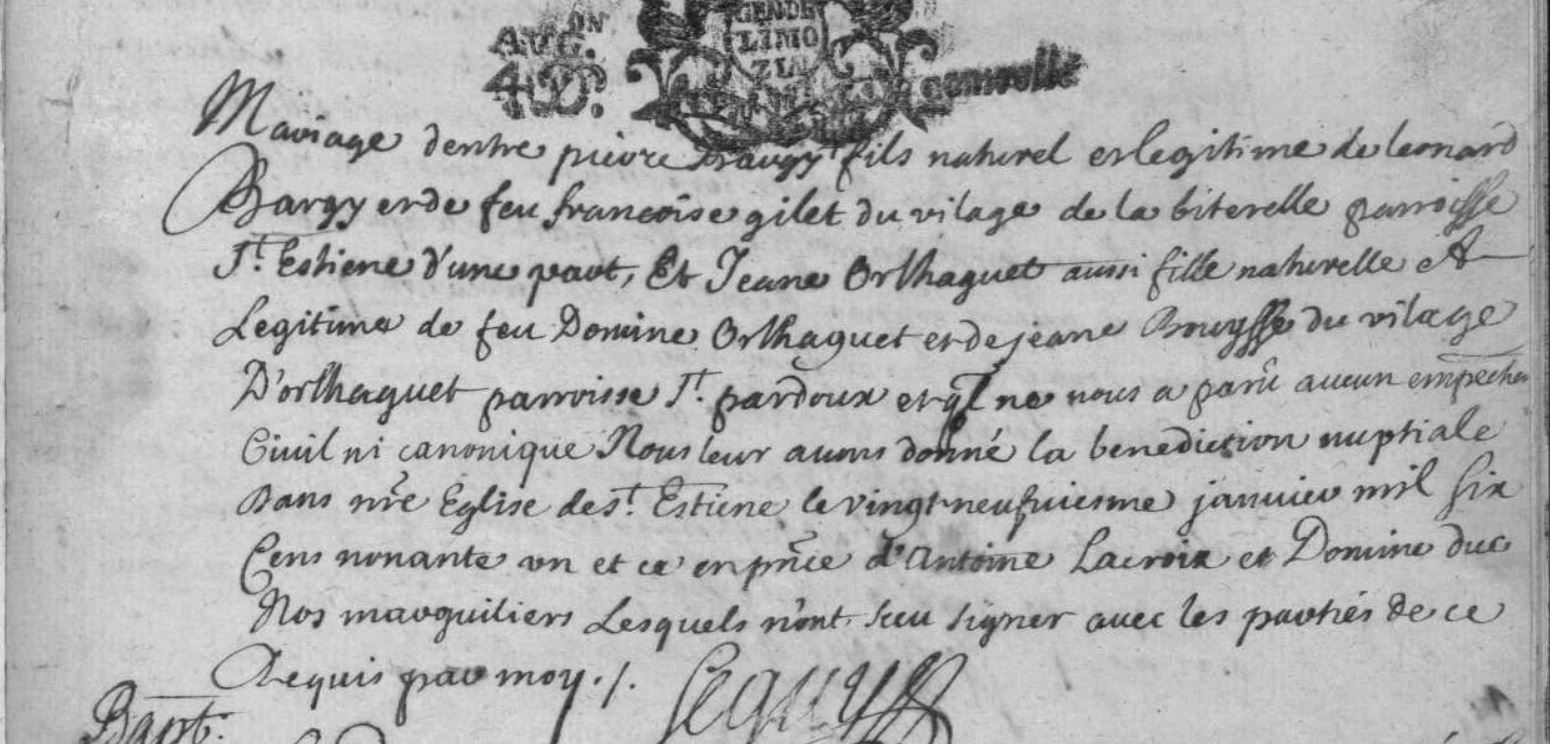 AUG.ON
4 D.
GENDE
LIMO
Mariage dentre pierre Bargy fils naturel et legitime de leonard
Bargy et de feu francoise gilet du vilage de la biterelle parroisse
St. Estiene d'une part, Et Jeane Orlhaguet aussi fille naturelle et
Legitime de feu Domine Orlhaguet et de jeane Bouysse du vilage
D'orlhaguet parroisse St. pardoux et ql ne nous a parû aucun empeche
Civil ni canonique Nous leur avons donné la benediction nuptiale
Dans nre Eglise de St. Estiene le vingt neufviesme janvier mil six
Cens nonante un et ce en pnce d'Antoine Lacroix et Domine duc
Nos marguiliers Lesquels n'ont sceu signer avec les parties de ce
Requis par moy ./. Seguy
Bapt.